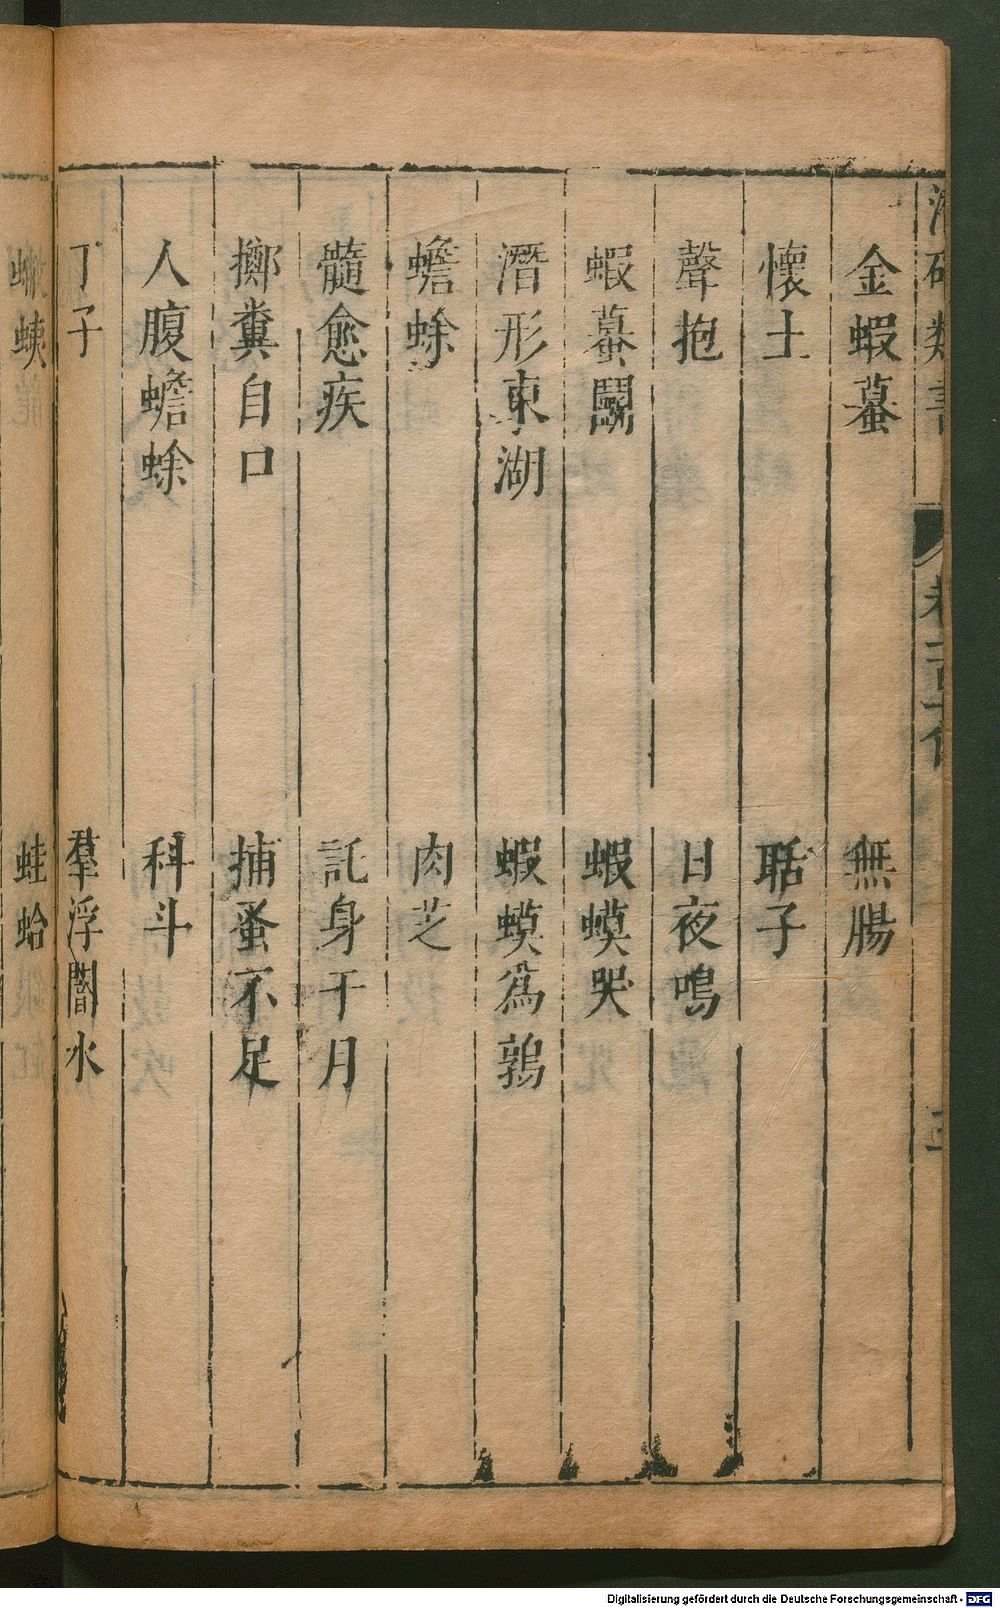 金蝦蟇 無腸
懷土 聒子
聲抱 日夜鳴
蝦蟇鬭 蝦蟆哭
潛形東湖 蝦蟆爲鶉
蟾蜍 肉芝
髓愈疾 託身于月
擲糞自口 捕蚤不足
人腹蟾蜍 科斗
丁子 羣浮闇水
蛙蛤
Digitalisierung gefördert durch die Deutsche Forschungsgemeinschaft - DFG